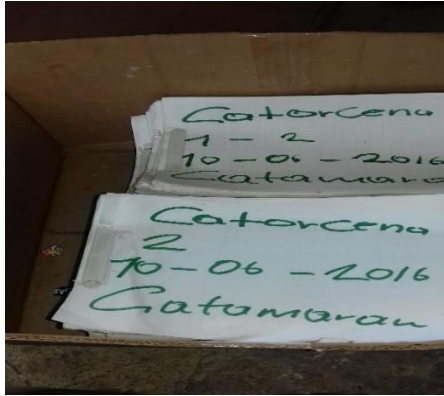 Catorcena
1 - 2
10 - 06 - 2016
Catamaran
Catorcena
2
10 - 06 - 2016
Catamaran